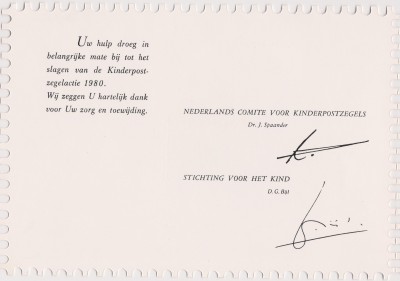 Uw hulp droeg in
belangrijke mate bij tot het
slagen van de Kinderpost-
zegelactie 1980.
Wij zeggen U hartelijk dank
voor Uw zorg en toewijding.
NEDERLANDS COMITE VOOR KINDERPOSTZEGELS
Dr. J. Spaander
STICHTING VOOR HET KIND
D. G. Bal